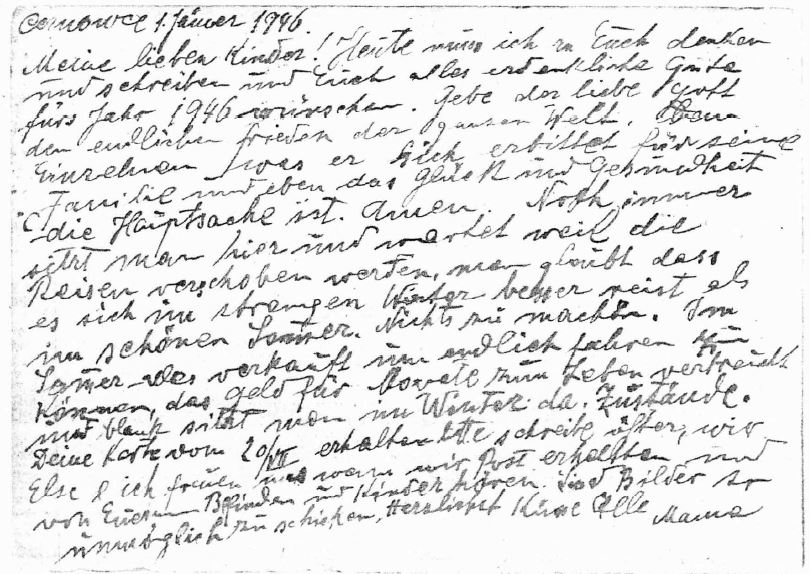 Cernowce 1. Jänner 1946.
Meine lieben Kinder! Heute muss ich zu Euch denken
und schreiben und Euch alles erdenkliche Gute
fürs Jahr 1946 wünschen. Gebe der liebe Gott
den endlichen Frieden der ganzen Welt. Dem
Einzelnen was er sich erbittet für seine
Familie und eben das Glück und Gesundheit
die Hauptsache ist. Amen. Noch immer
sitzt man hier und wartet weil die
Reisen verschoben werden, man glaubt dass
es sich im strengen Winter besser reist als
im schönen Sommer. Nichts zu machen. Im
Sommer alles verkauft um endlich fahren zu
können, das Geld für Monate zum Leben verbraucht
und blank sitzt man im Winter da. Zustände.
Deine Karte vom 20/VII erhalten bitte schreibe öfter, wir
Else & ich freuen uns wann wir Post erhalten und
von Eurem Befinden und Kinder hören. Sind Bilder so
unmöglich zu schicken, Herzlichst Küsse Alle
Mama